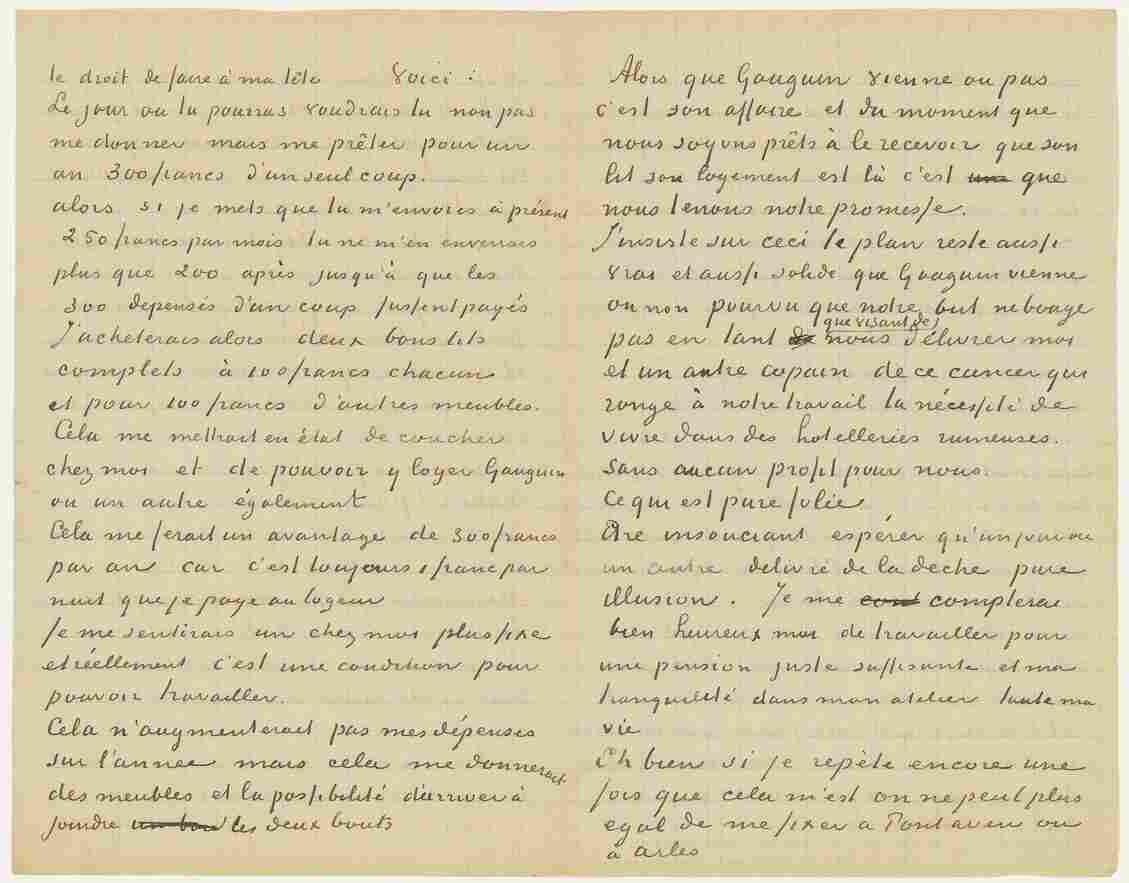 le droit de faire à ma tête Voici :
Le jour ou tu pourras voudrais tu non pas
me donner mais me prêter pour un
an 300 francs d'un seul coup.
alors si je mets que tu m'envoies à présent
250 francs par mois tu ne m'en enverrais
plus que 200 après jusqu'à que les
300 depensés d'un coup fussent payés
J'acheterais alors deux bons lits
complets à 100 francs chacun
et pour 100 francs d'autres meubles.
Cela me mettrait en état de coucher
chez moi et de pouvoir y loger Gauguin
ou un autre également
Cela me ferait un avantage de 300 francs
par an car c'est toujours 1 franc par
nuit que je paye au logeur
Je me sentirais un chez moi plus fixe
et réellement c'est une condition pour
pouvoir travailler.
Cela n'augmenterait pas mes dépenses
sur l'annee mais cela me donnerait
des meubles et la possibilité d'arriver à
joindre un bou les deux bouts
Alors que Gauguin vienne ou pas
c'est son affaire et du moment que
nous soyons prêts à le recevoir que son
lit son logement est là c'est que
nous tenons notre promesse.
J'insiste sur ceci le plan reste aussi
vrai et aussi solide que Gauguin vienne
ou non pourvu que notre but ne bouge
que visant de
pas en tant de nous délivrer moi
et un autre copain de ce cancer qui
ronge à notre travail la nécessité de
vivre dans des hotelleries ruineuses.
Sans aucun profit pour nous.
Ce qui est pure folie
Etre insouciant espérer qu'un jour ou
un autre delivré de la dèche pure
illusion. Je me cont compterai
bien heureux moi de travailler pour
une pension juste suffisante et ma
tranquillité dans mon atelier toute ma
vie
Eh bien si je repète encore une
fois que cela m'est on ne peut plus
egal de me fixer a Pontaven ou
à Arles